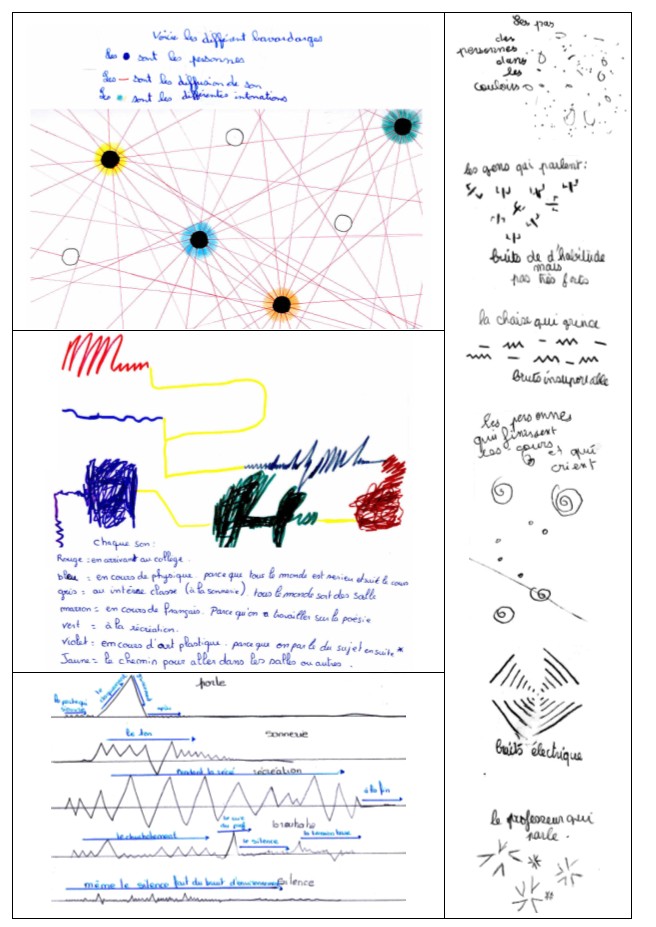 Voici les différent bavardages
Les ● sont les personnes
Les — sont les diffusion de son
Les ● sont les différentes intonations
Chaque son :
Rouge : en arrivant au collège.
bleu = en cours de physique. parce que tous le monde est serieu et suit le cour
gris = au intère classe (à la sonnerie). tous le monde sort des salle
marron = en cours de français. Parce qu'on a travailler sur la poésie
vert = à la récréation.
violet = en cours d'art plastique. parce que on parle du sujet ensuite *
Jaune = le chemin pour aller dans les salles ou autres.
porte
Le ton
sonnerie
récréation
à la fin
brouhaha
le chuchotement
le cri du prof
le silence
même le silence fait du bruit
silence
Les pas
des
personnes
dans
les
couloirs
les gens qui parlent :
bruits de d'habitude
mais
pas très forts
la chaise qui grince
bruits insuportable
les personnes
qui finissent
les cours et qui
crient
bruits électrique
le professeur qui
parle.